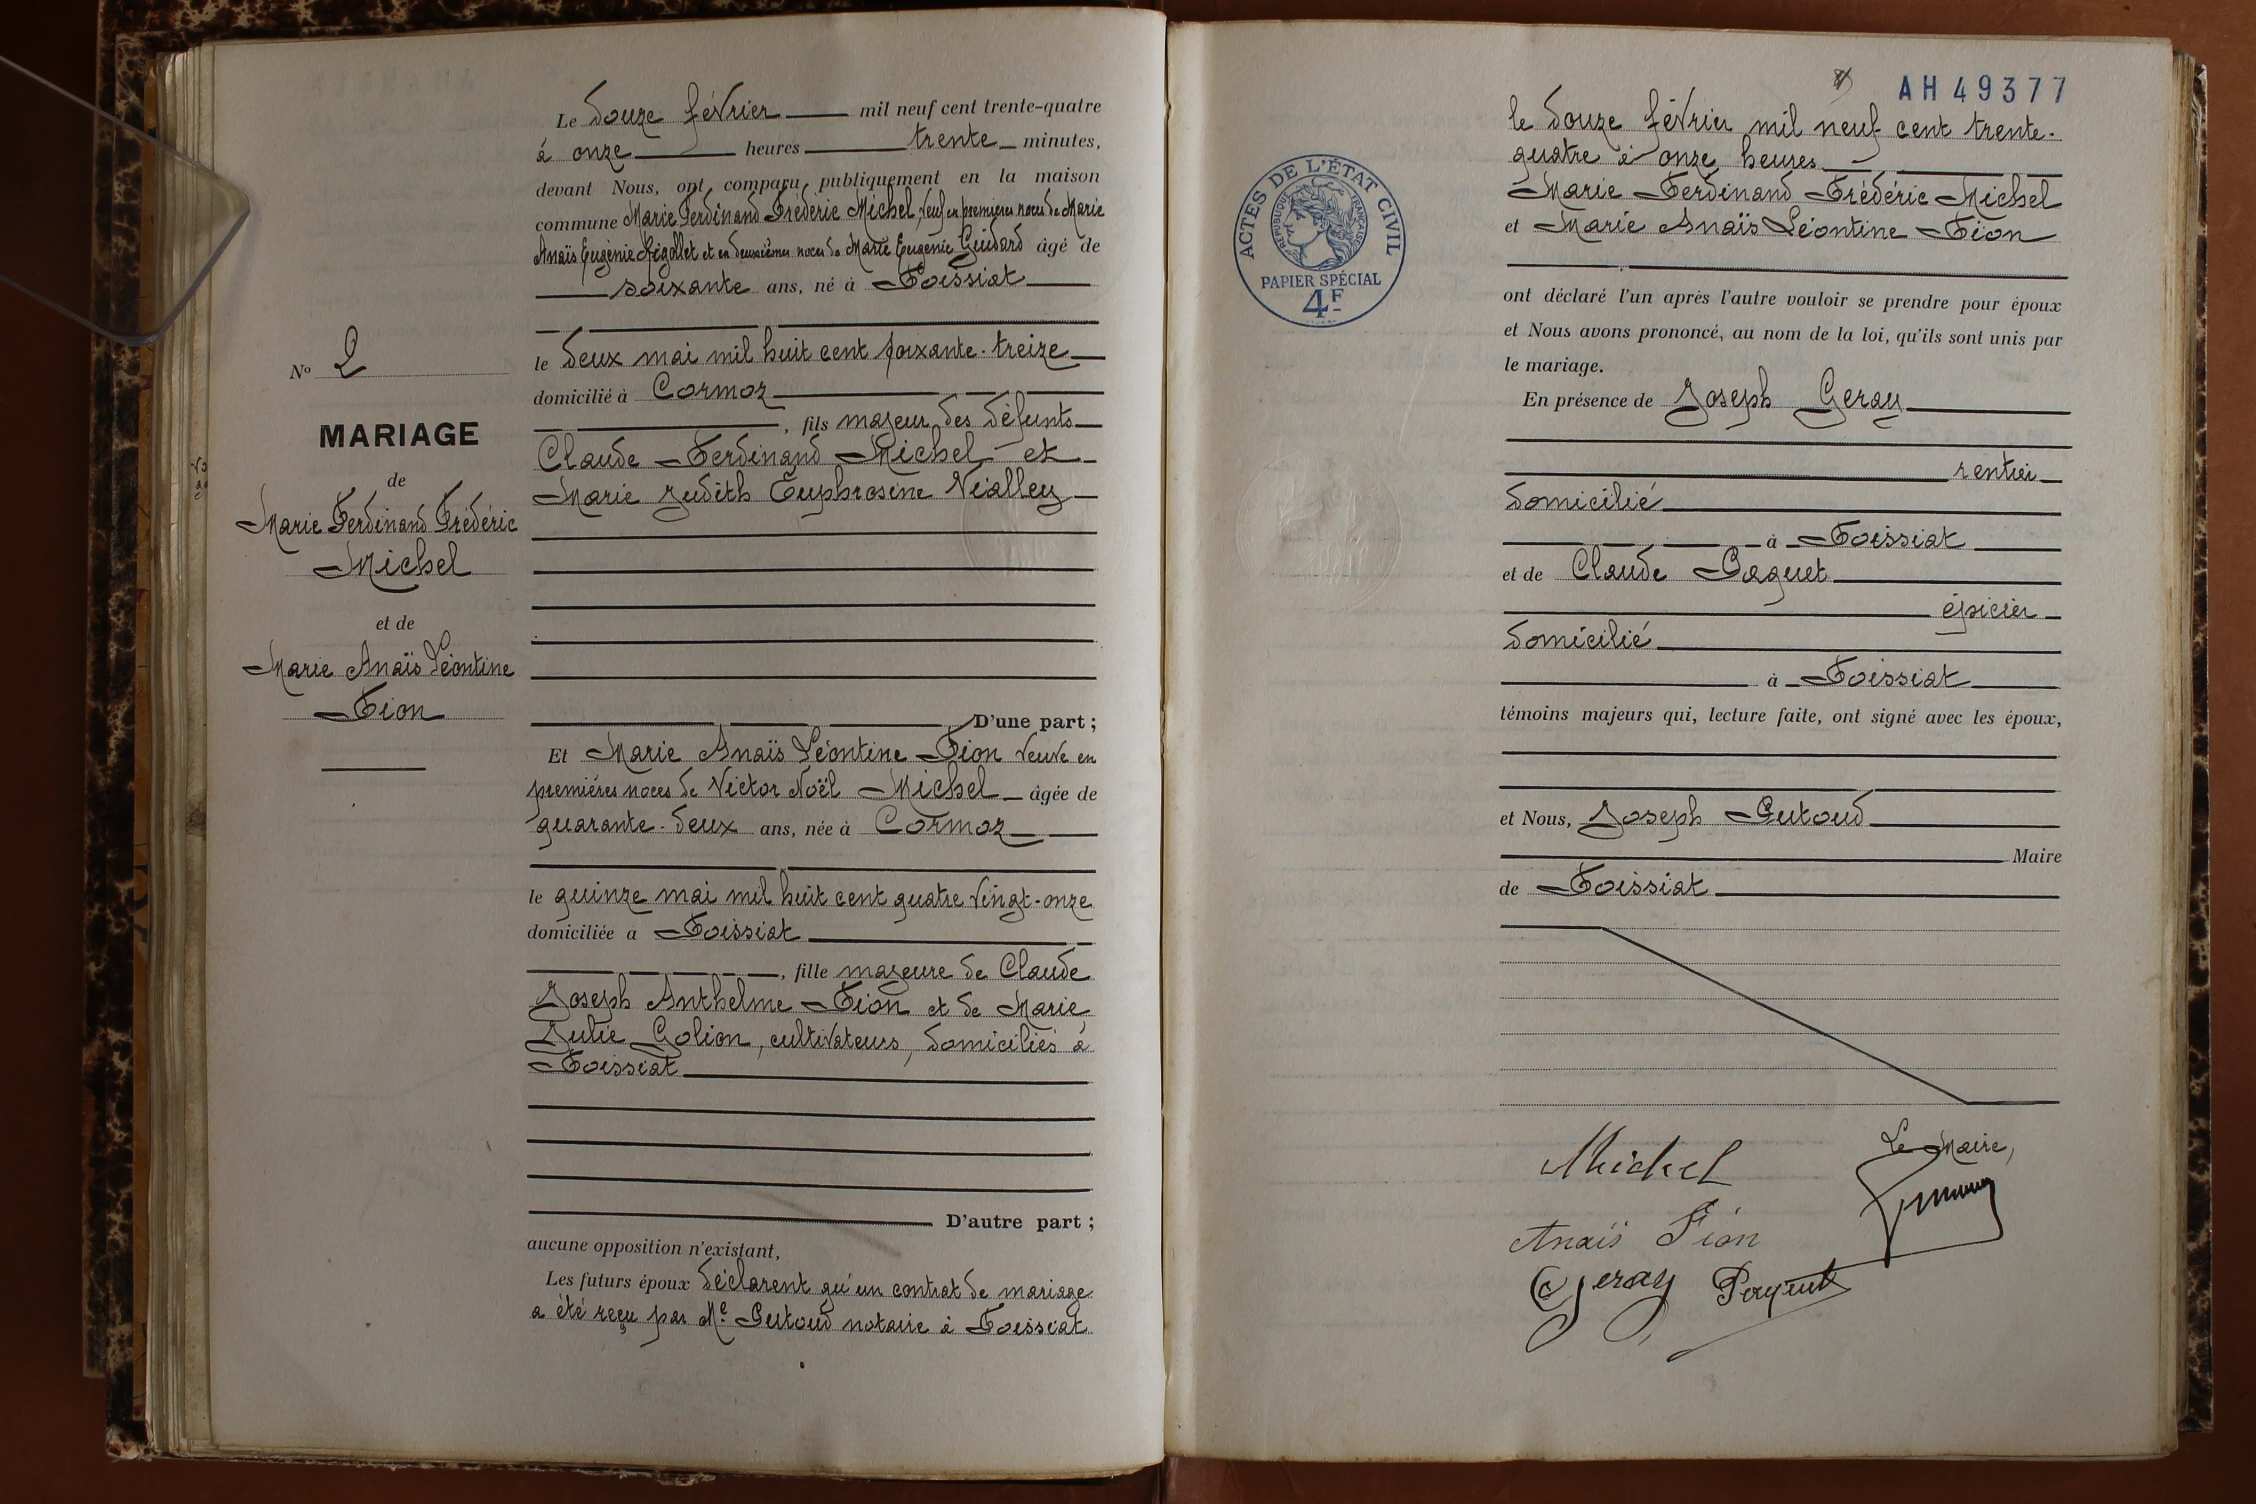 Le douze février mil neuf cent trente-quatre
à onze heures trente minutes,
devant Nous, ont comparu publiquement en la maison
commune Marie Ferdinand Frédéric Michel, Veuf en premières noces de Marie
Anaïs Eugénie et en deuxièmes noces de Marie Eugénie âgé de
soixante ans, né à Foissiat
le deux mai mil huit cent soixante-treize
domicilié à Cormoz
, fils majeur des défunts
Claude Ferdinand Michel et
Marie Judith Euphrosine Vialley
D'une part ;
Et Marie Anaïs Léontine Fion veuve en
premières noces de Victor Noël Michel âgée de
quarante-deux ans, née à Cormoz
le quinze mai mil huit cent quatre vingt-onze
domiciliée à Foissiat
, fille majeure de Claude
Joseph Anthelme Fion et de Marie
Julie Golion, cultivateurs, domiciliés à
Foissiat
D'autre part ;
aucune opposition n'existant,
Les futurs époux déclarent qu'un contrat de mariage
a été reçu par Me Putoud notaire à Foissiat
No 2
MARIAGE
de
Marie Ferdinand Frédéric
Michel
et de
Marie Anaïs Léontine
Fion
AH 49377
ACTES DE L'ÉTAT CIVIL
RÉPUBLIQUE FRANÇAISE
PAPIER SPÉCIAL
4F
le douze février mil neuf cent trente-
quatre à onze heures
Marie Ferdinand Frédéric Michel
et Marie Anaïs Léontine Fion
ont déclaré l'un après l'autre vouloir se prendre pour époux
et Nous avons prononcé, au nom de la loi, qu'ils sont unis par
le mariage.
En présence de Joseph Geray
rentier
domicilié
à Foissiat
et de Claude Paquet
épicier
domicilié
à Foissiat
témoins majeurs qui, lecture faite, ont signé avec les époux,
et Nous, Joseph Putoud
Maire
de Foissiat
Le Maire,
Michel
Anaïs Fion
Geray